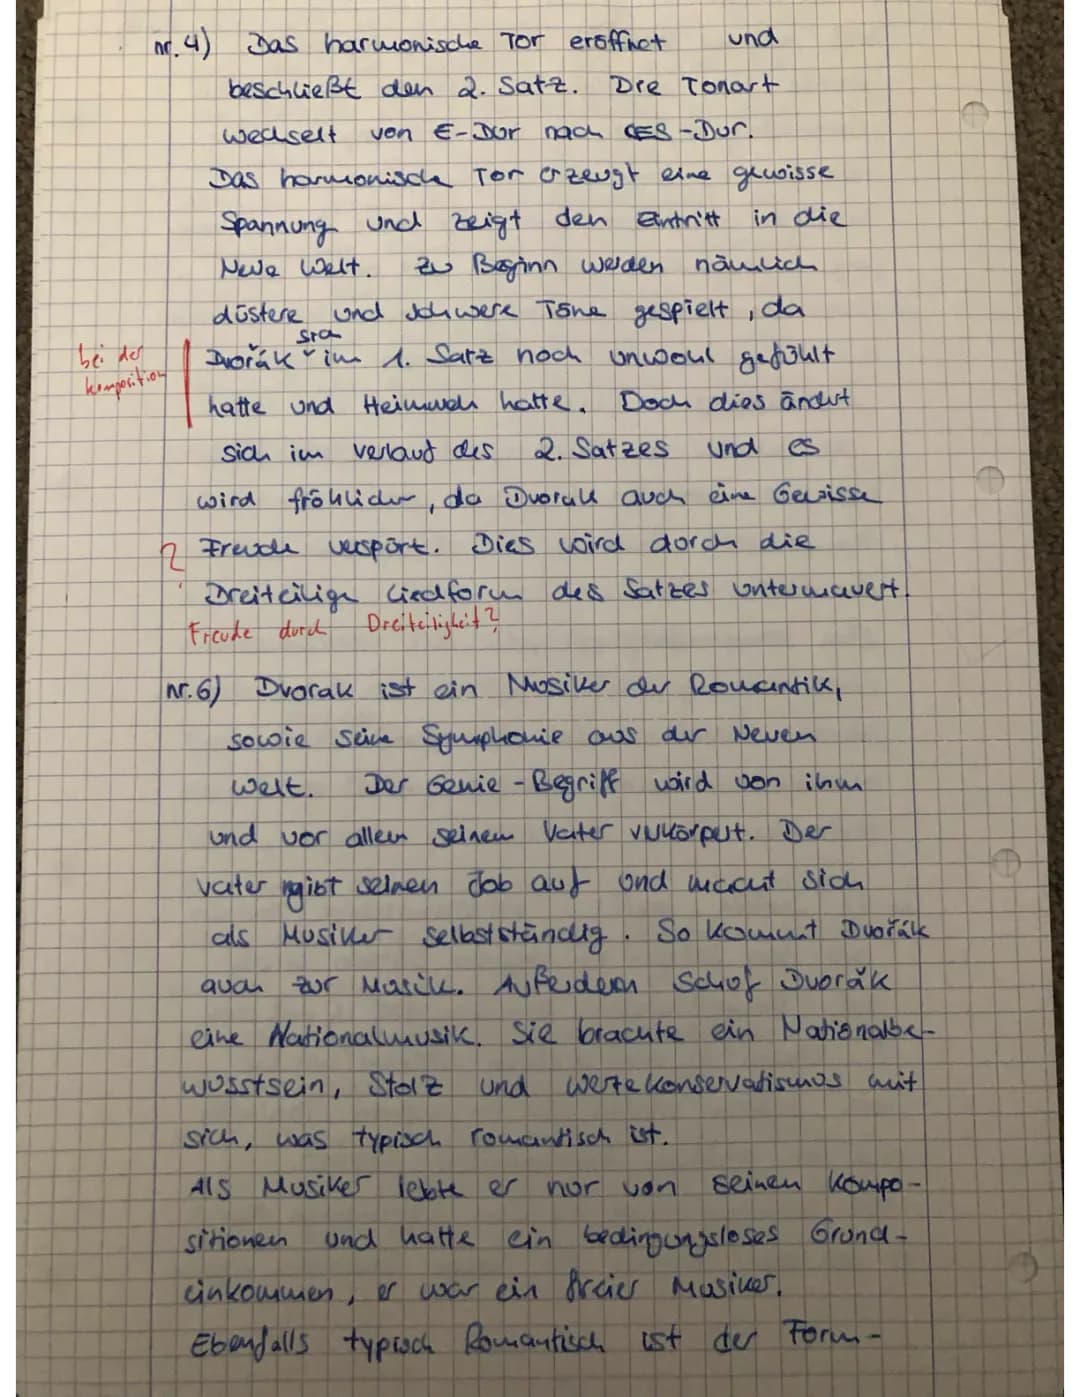 nr. 4) Das harmonische Tor eröffnet und
beschließt den 2. Satz. Die Tonart
wechselt von E-Dur nach DES-Dur.
Das harmonische Tor erzeugt eine gewisse
Spannung und zeigt den Eintritt in die
Neue Welt. Zu Beginn werden nämlich
düstere und schwere Töne gespielt, da
sich
bei der
Komposition
Dvořák im 1. Satz noch unwohl gefühlt
hatte und Heimweh hatte. Doch dies ändert
sich im verlauf des 2. Satzes und es
wird fröhlicher, da Dvorak auch eine Gewisse
? Freude verspürt. Dies wird durch die
Dreiteilige Liedform des Satzes untermauert.
Freude durch Dreiteiligkeit?
nr. 6) Dvorak ist ein Musiker der Romantik,
sowie seine Symphonie aus der Neuen
Welt. Der Genie-Begriff wird von ihm
und vor allem seinem Vater verkörpert. Der
Vater gibt seinen Job auf und macht sich
als Musiker selbstständig. So kommt Dvořák
auch zur Musik. Außerdem schof Dvořák
eine Nationalmusik. Sie brachte ein Nationalbe-
wusstsein, Stolz und Wertekonservatismus mit
sich, was typisch romantisch ist.
Als Musiker lebte er nur von seinen Kompo-
sitionen und hatte ein bedingungsloses Grund-
einkommen, er war ein freier Musiker.
Ebenfalls typisch Romantisch ist der Form-